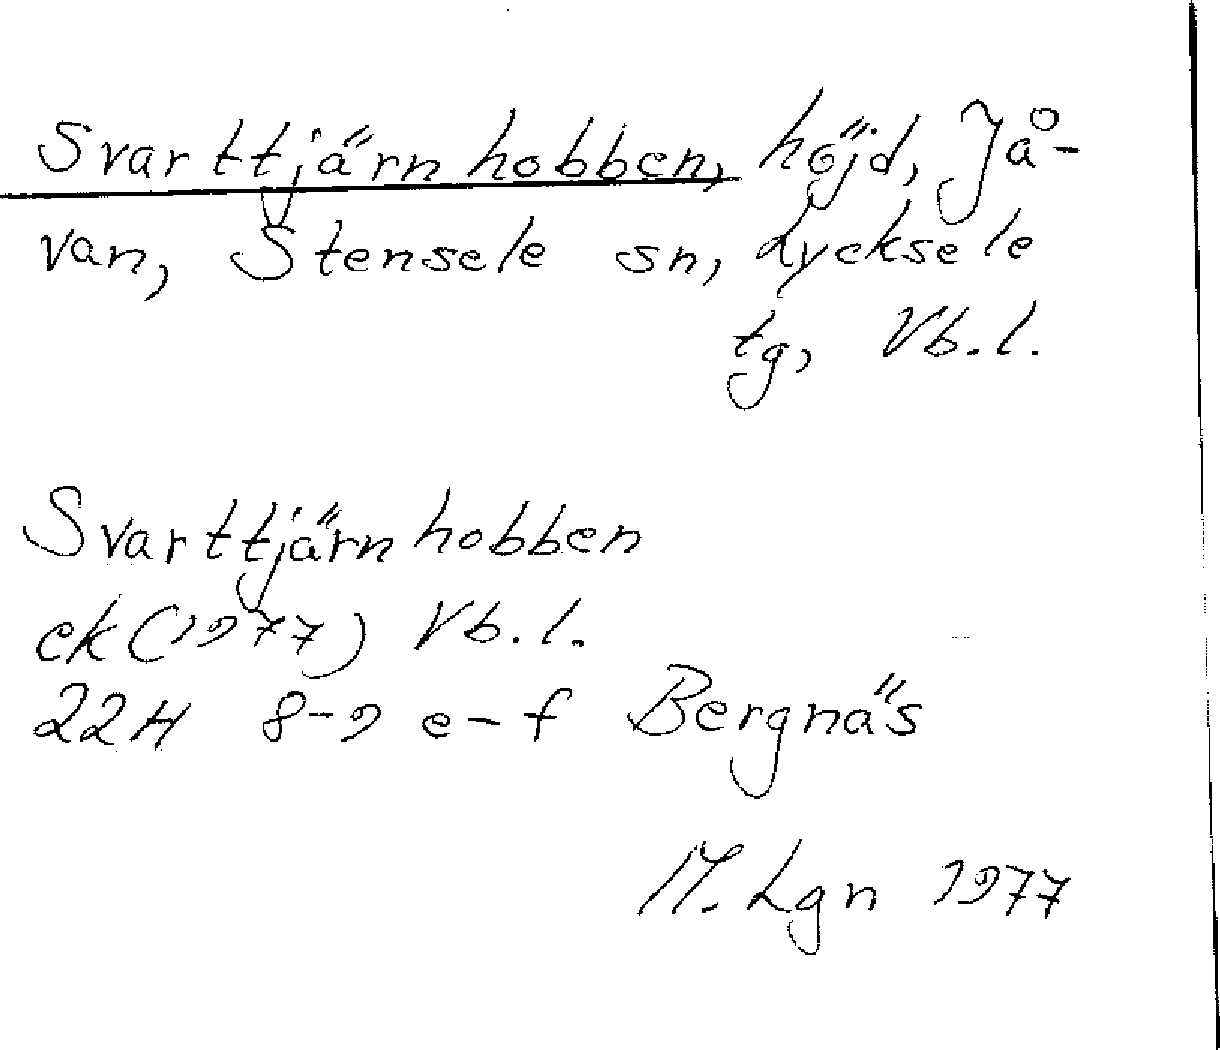 Svarttjärnhobben, höjd, Jå-
van, Stensele sn, Lycksele
tg, Vb.l.
Svarttjärnhobben
ek(1977) Vb.l.
22H 8-9 e-f Bergnäs
M. Lgn 1977